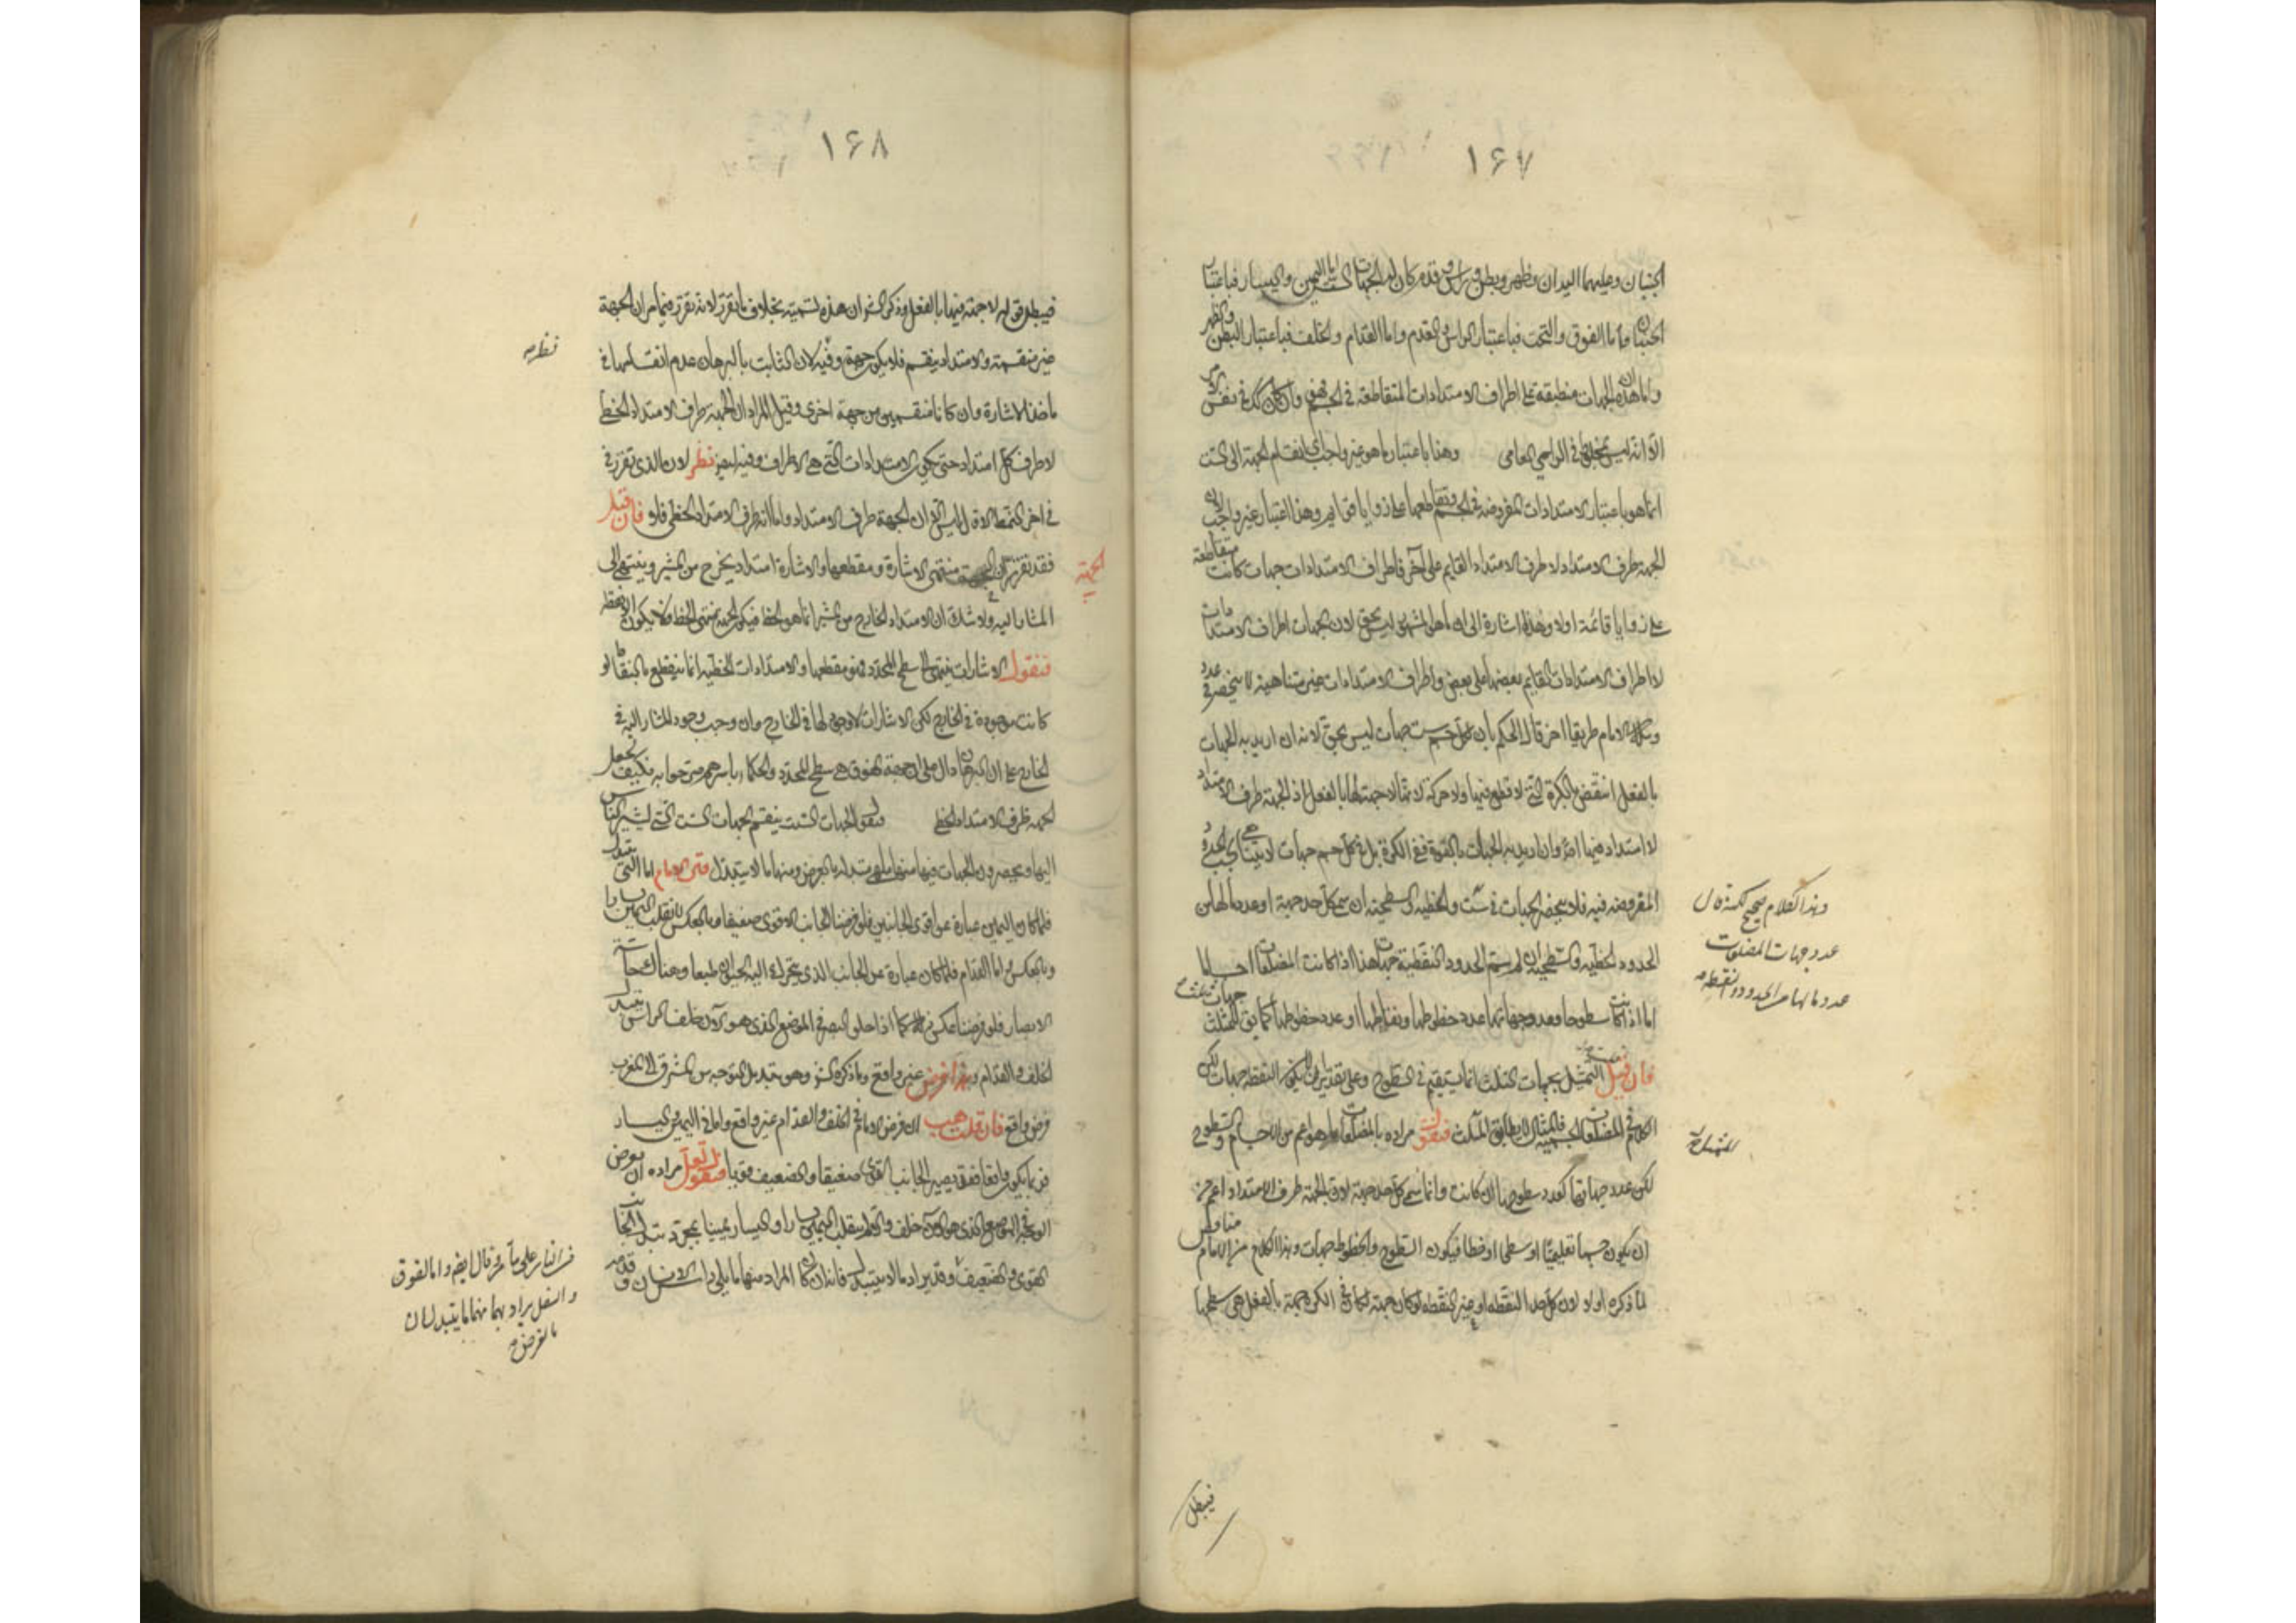 ١٦٧
الجنبان وعليهما اليدان وظهر وبطن وراس وقدم كان له الجهات الست اما اليمين واليسار فباعتبار
الجنبان واما الفوق والتحت فباعتبار الراس والقدم واما القدام والخلف فباعتبار البطن والظهر
واما ان هذه الجهات منطبقة على اطراف الامتدادات المتقاطعة في الجسم فهو وان كان كذلك في نفس الامر
الا انه ليس في الراي العامي وهذا باعتبار ما هو غير واجب اي انقسام الجهة الى الست
انما هو باعتبار الامتدادات المفروضة في الجسم وتقاطعها على زوايا قوايم وهذا اعتبار غير واجب لان
الجهة طرف الامتداد لا طرف الامتداد القايم على آخر فاطراف الامتدادات جهات كانت متقاطعة
على زوايا قائمة اولا وهذا اشارة الى ان ما هو المشهور ليس بحق لان الجهات اطراف الامتدادات
لا اطراف الامتدادات القايم بعضها على بعض واطراف الامتدادات غير متناهية لا ينحصر في عدد
وسلك الامام طريقا اخر قال الحكم بان لكل جسم ست جهات ليس بحق لانه ان اريد به الجهات
بالفعل انتقض بالكرة التي لا قطع فيها ولا حركة لانها لا جهة لها بالفعل اذ الجهة طرف الامتداد
لا امتداد فيها وان اريد به الجهات بالقوة ففي الكرة بل في كل جسم جهات لا يتناهى بحسب الحدود
المفروضة فيه فلا ينحصر الجهات في ست والخطية والسطحية ان سمي كل حد جهة او عدد ما لها من
الحدود الخطية والسطحية ان لم يسم الحدود النقطية جهات هذا اذا كانت المضلعات اجساما
اما اذا كانت سطوحا فعدد جهاتها عدد خطوطها ونقاطها او عدد خطوطها كما في المثلث
فان قيل التمثيل بجهات المثلث انما يستقيم في السطوح وعلى تقدير ان يكون النقطة جهات لكن
الكلام في المضلعات الجسمية فالمثال لا يطابق الممثل فنقول مراده بالمضلعات ما هو اعم من الاجسام والسطوح
لكن عدد جهاتها كعدد سطوحها ان كانت وانما سمي كل حد جهة لان الجهة طرف الامتداد اعم من
ان يكون جسما تعليميا او سطحا او خطا فيكون السطوح والخطوط جهات وهذا الكلام من الامام مناقض
لما ذكره اولا لان كل حد النقطة او غير النقطة لو كان جهة لكان في الكرة جهة بالفعل هي سطحها
وهذا الكلام صحيح
عدد جهات المضلعات
عدد ما لها من الحدود النقطية
فيبطل
١٦٨
فيبطل قوله لا جهة فيها بالفعل وذكر الش ان هذه تسمية بخلاف ما تقرر لانه تقرر فيما مر ان الجهة
غير منقسمة والامتداد ينقسم فلا يكون جهة وفيه لان الثابت بالبرهان عدم انقسامها في
ماخذ الاشارة وان كانا منقسمين من جهة اخرى وقيل المراد ان الجهة طرف الامتداد الخطي
لا طرف كل امتداد حتى يكون الامتدادات التي هي الاطراف وفيه ايضا نظر لان الذي تقرر في
في اخر النمط الاول ليس الا ان الجهة طرف الامتداد واما انه طرف الامتداد الخطي فلا فان قيل
فقد تقرر ان الجهة منتهى الاشارة ومقطعها والاشارة امتداد يخرج من المشير وينتهي الى
المشار اليه ولا شك ان الامتداد الخارج من المشير انما هو الخط فيكون الجهة منتهى الخط فلا يكون الا نقطة
فنقول الاشارات ينتهي الى سطح المحدد فهو مقطعها والامتدادات الخطية انما ينقطع بالنقاط لو
كانت موجودة في الخارج لكن الاشارات لا وجود لها في الخارج وان وجب وجود المشار اليه في
الخارج على ان البرهان دال على ان جهة الفوق هي سطح المحدد والحكماء باسرهم صرحوا به فكيف يجعل
الجهة طرف الامتداد الخطي فنقول الجهات الست ينقسم الجهات الست التي يشير الناس
اليها ويحصرون الجهات فيها منها ما هي متبدلة بالعرض ومنها ما لا يتبدل قال الامام اما التي يتبدل
فلما كان اليمين عبارة عن اقوى الجانبين فلو فرضنا الجانب الاقوى ضعيفا وبالعكس لانقلب اليمين يسارا
وبالعكس واما القدام فلما كان عبارة عن الجانب الذي يتحرك اليه الحيوان طبعا وهناك حاسة
الابصار فلو فرضنا عكس ذلك كما اذا خلق البصر في الموضع الذي هو الآن خلف الراس يتبدل
الخلف والقدام وهذا فرض غير واقع وما ذكره الش وهو تبديل التوجه من المشرق الى المغرب
فرض واقع فان قلت هب ان فرض الامام في الخلف والقدام غير واقع واما في اليمين واليسار
فربما يكون واقعا فقد يصير الجانب القوي ضعيفا والضعيف قويا فنقول لعل مراده ان يفرض
الوجه في الموضع الذي هو الآن خلف والظهر ينقلب اليمين يسارا واليسار يمينا بمجرد تبدل الجانب
القوي والضعيف وقد يراد ما لا يتبدل فانه ان كان المراد منهما ما يلي راس الانسان وقدمه
نظر
الجهة
ثم قال ايضا واما الفوق
والسفل يراد بهما منها ما يتبدلان
بالفرض